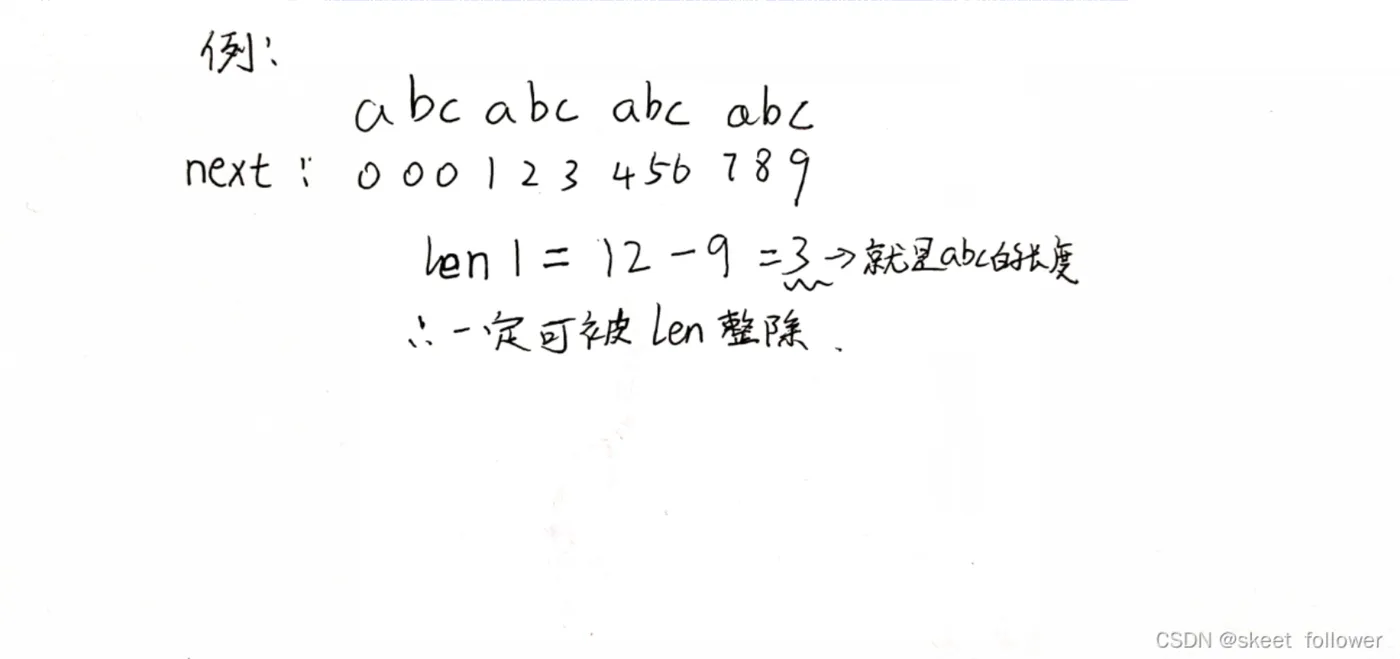 例：
abc abc abc abc
next： 0 0 0 1 2 3 4 5 6 7 8 9
len1 = 12 - 9 = 3 → 就是abc的长度
∴一定可被len整除．
CSDN @skeet follower